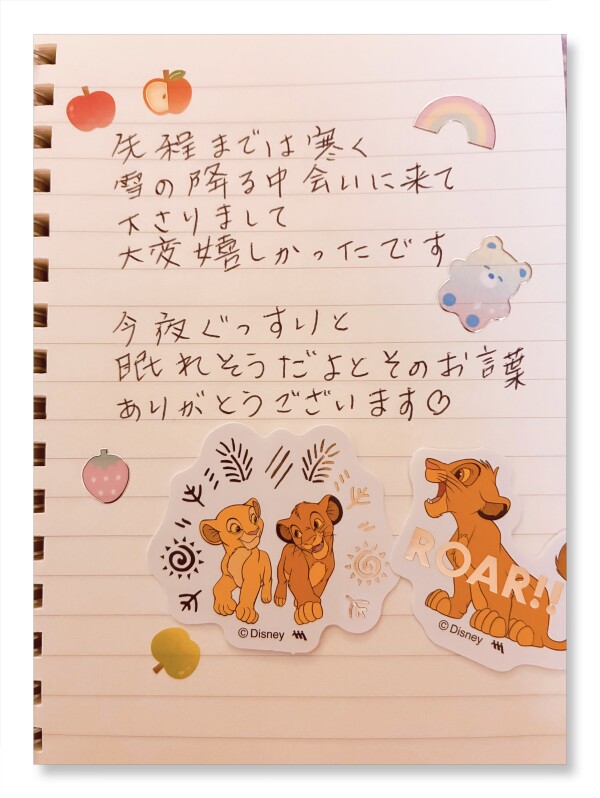 先程までは寒く
雪の降る中会いに来て
下さりまして
大変嬉しかったです
今夜ぐっすりと
眠れそうだよとそのお言葉
ありがとうございます♡
© Disney
ROAR!!
© Disney